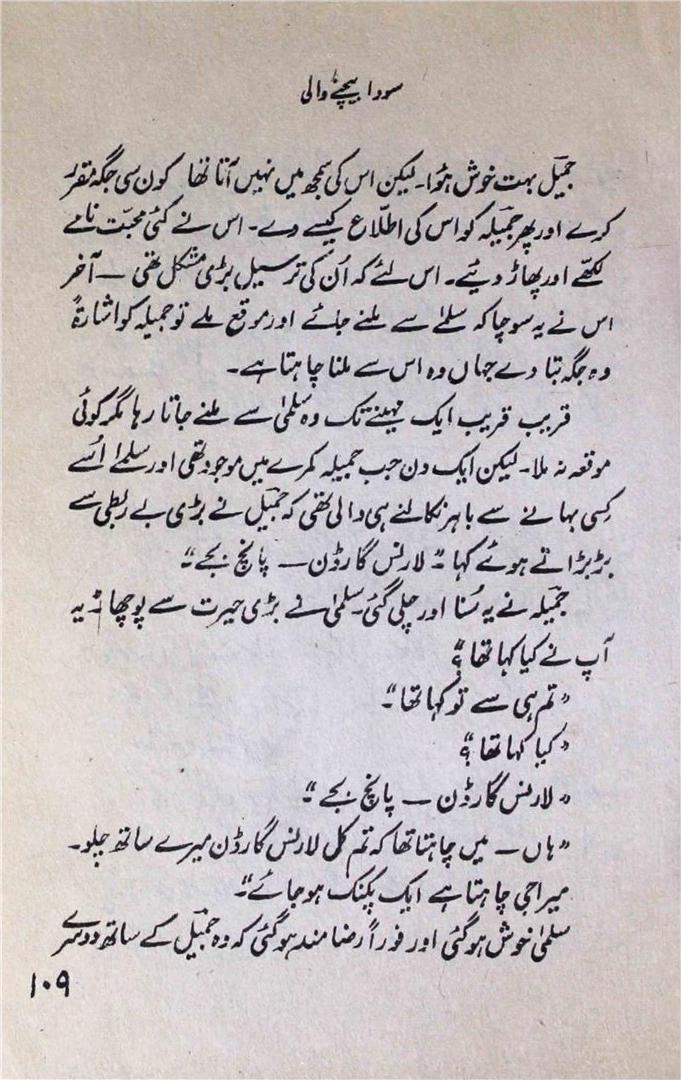 سودا بیچنے والی
جمیل بہت خوش ہؤا۔ لیکن اس کی سمجھ میں نہیں آتا تھا کون سی جگہ مقرر
کرے اور پھر جمیلہ کو اس کی اطلاع کیسے دے۔ اس نے کئی محبّت نامے
لکھے اور پھاڑ دیئے۔ اس لئے کہ اُن کی ترسیل بڑی مشکل تھی — آخر
اس نے یہ سوچا کہ سلمےٰ سے ملنے جائے اور موقع ملے تو جمیلہ کو اشارۃً
وہ جگہ بتا دے جہاں وہ اس سے ملنا چاہتا ہے۔
قریب قریب ایک مہینے تک وہ سلمیٰ سے ملنے جاتا رہا مگر کوئی
موقعہ نہ ملا۔ لیکن ایک دن جب جمیلہ کمرے میں موجود تھی اور سلمےٰ اُسے
کسی بہانے سے باہر نکالنے ہی والی تھی کہ جمیل نے بڑی بے ربطی سے
بڑبڑاتے ہوئے کہا "لارنس گارڈن — پانچ بجے"۔
جمیلہ نے یہ سُنا اور چلی گئی۔ سلمیٰ نے بڑی حیرت سے پوچھا "یہ
آپ نے کیا کہا تھا؟"
"تم ہی سے تو کہا تھا"۔
"کیا کہا تھا؟"
"لارنس گارڈن — پانچ بجے"۔
"ہاں — میں چاہتا تھا کہ تم کل لارنس گارڈن میرے ساتھ چلو۔
میرا جی چاہتا ہے ایک پکنک ہو جائے"۔
سلمیٰ خوش ہو گئی اور فوراً رضا مند ہو گئی کہ وہ جمیل کے ساتھ دوسرے
۱۰۹